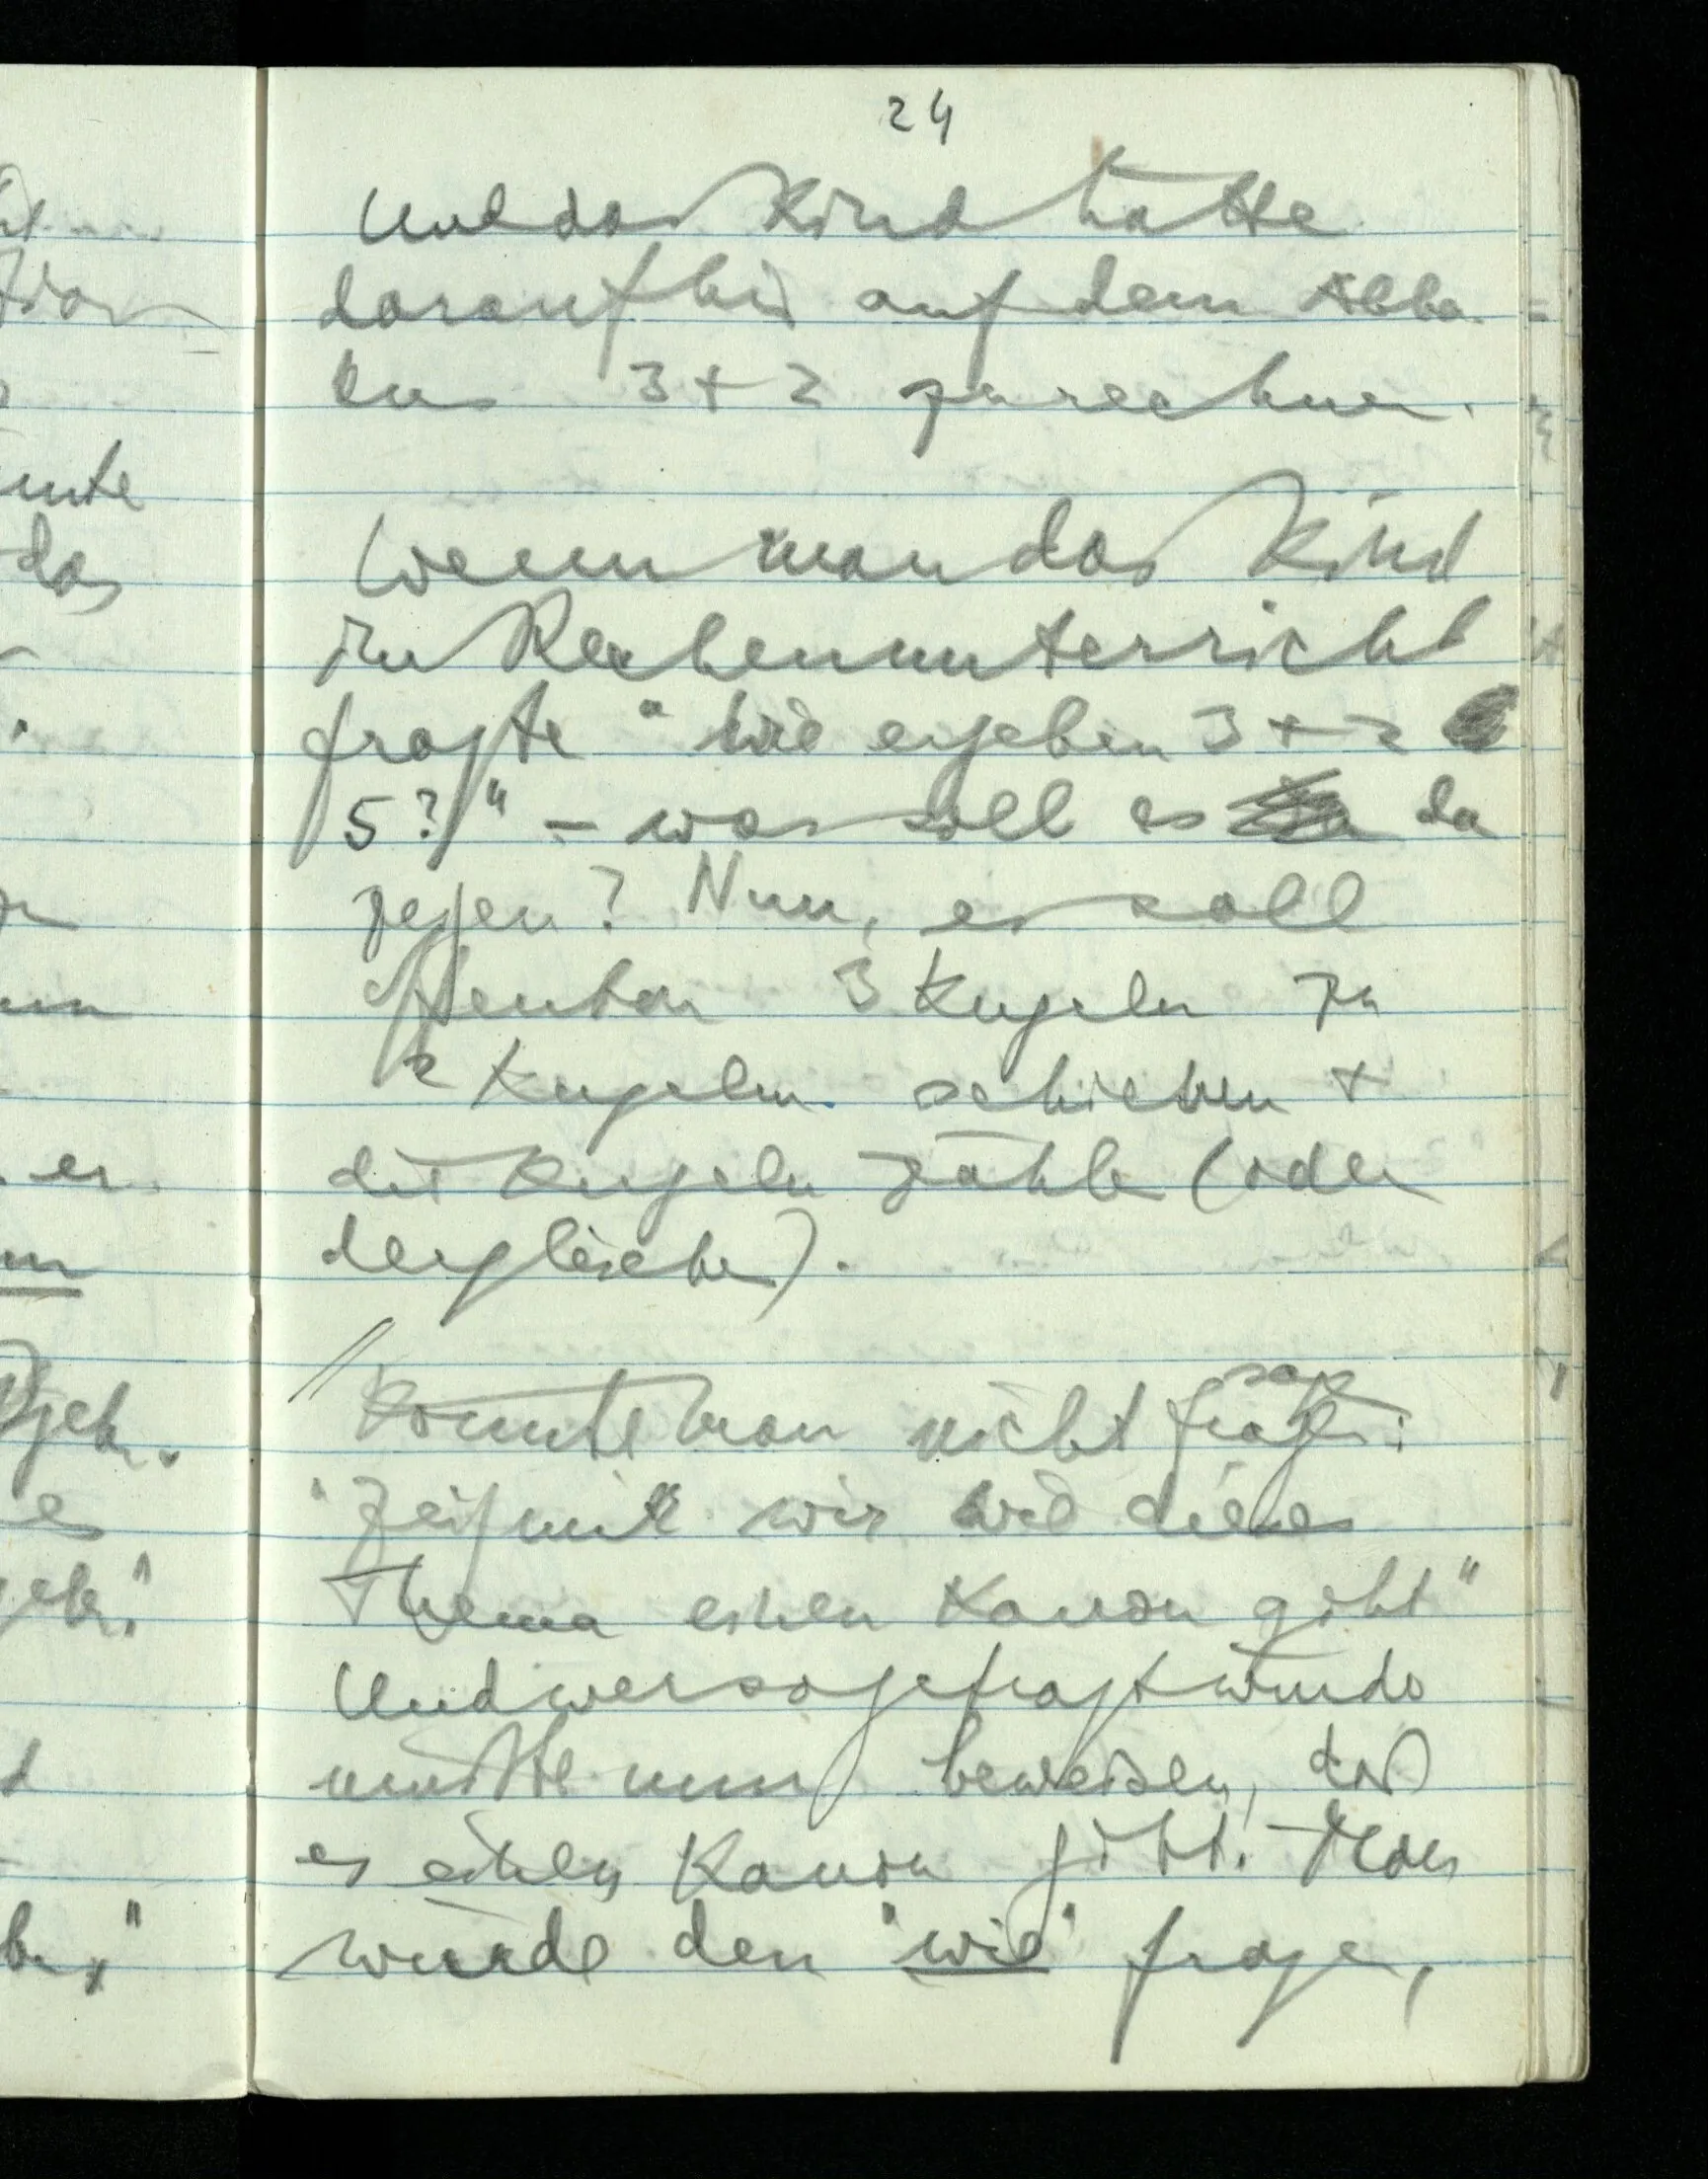 24
Und das Kind hätte
daraufhin auf dem Abba-
kus 3 + 2 zu rechnen.
Wenn man das Kind
im Rechenunterricht
fragte "wie ergeben 3 + 2
5?" – was soll es da
zeigen? Nun, es soll
offenbar 3 Kugeln zu
2 Kugeln schieben +
die Kugeln zählen (oder
dergleichen).
// Könnte man nicht fragen: sagen
"Zeig mir wie dieses
Thema einen Kanon gibt"
Und wer so gefragt würde
müßte nun beweisen, daß
es einen Kanon gibt. – Man
würde den "wie" fragen,